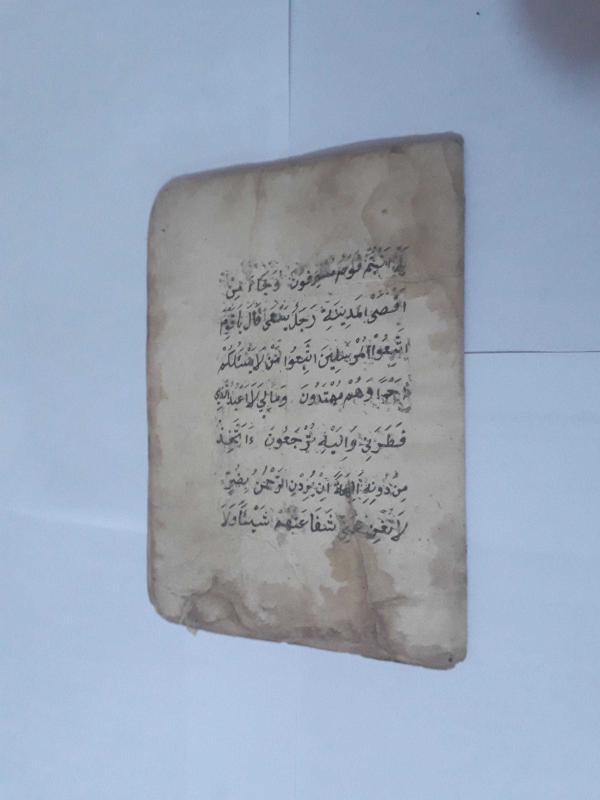 بَلْ اَنْتُمْ قَوْمٌ مُسْرِفُونَ وَجَاءَ مِنْ
اَقْصَى الْمَدِينَةِ رَجُلٌ يَسْعَى قَالَ يَا قَوْمِ
اتَّبِعُوا الْمُرْسَلِينَ اتَّبِعُوا مَنْ لَا يَسْئَلُكُمْ
اَجْرًا وَهُمْ مُهْتَدُونَ وَمَالِيَ لَا اَعْبُدُ الَّذِي
فَطَرَنِي وَاِلَيْهِ تُرْجَعُونَ ءَاَتَّخِذُ
مِنْ دُونِهِ اٰلِهَةً اِنْ يُرِدْنِ الرَّحْمٰنُ بِضُرٍّ
لَا تُغْنِ عَنِّي شَفَاعَتُهُمْ شَيْئًا وَلَا